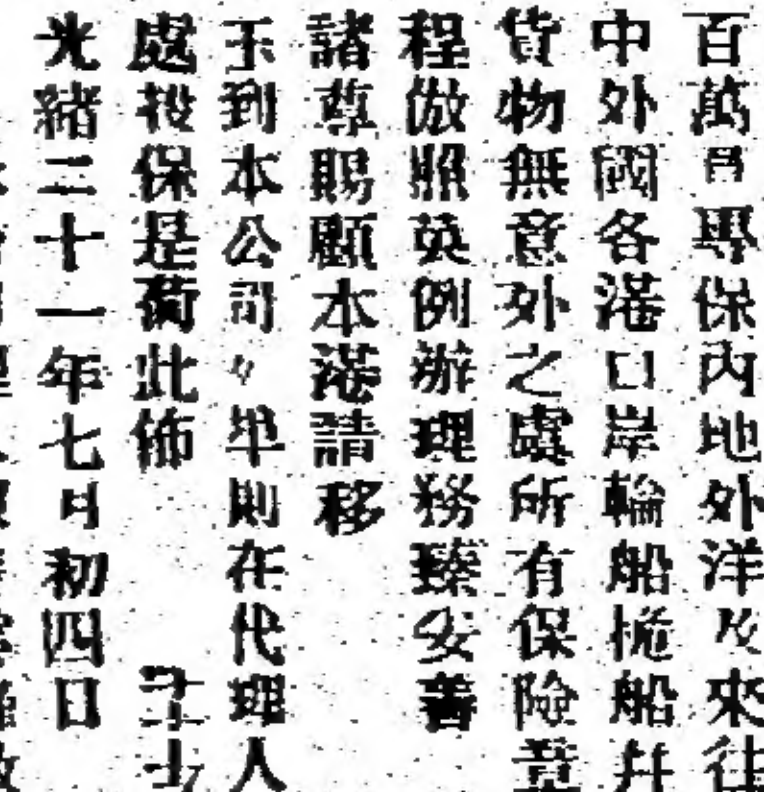 百萬員專保內地外洋及來往
中外國各港口岸輪船桅船并
貨物無意外之處所有保險章
程倣照英例辦理務臻妥善
諸尊賜顧本港請移
玉到本公司 則在代理人
處投保是荷此佈
光緒二十一年七月初四日